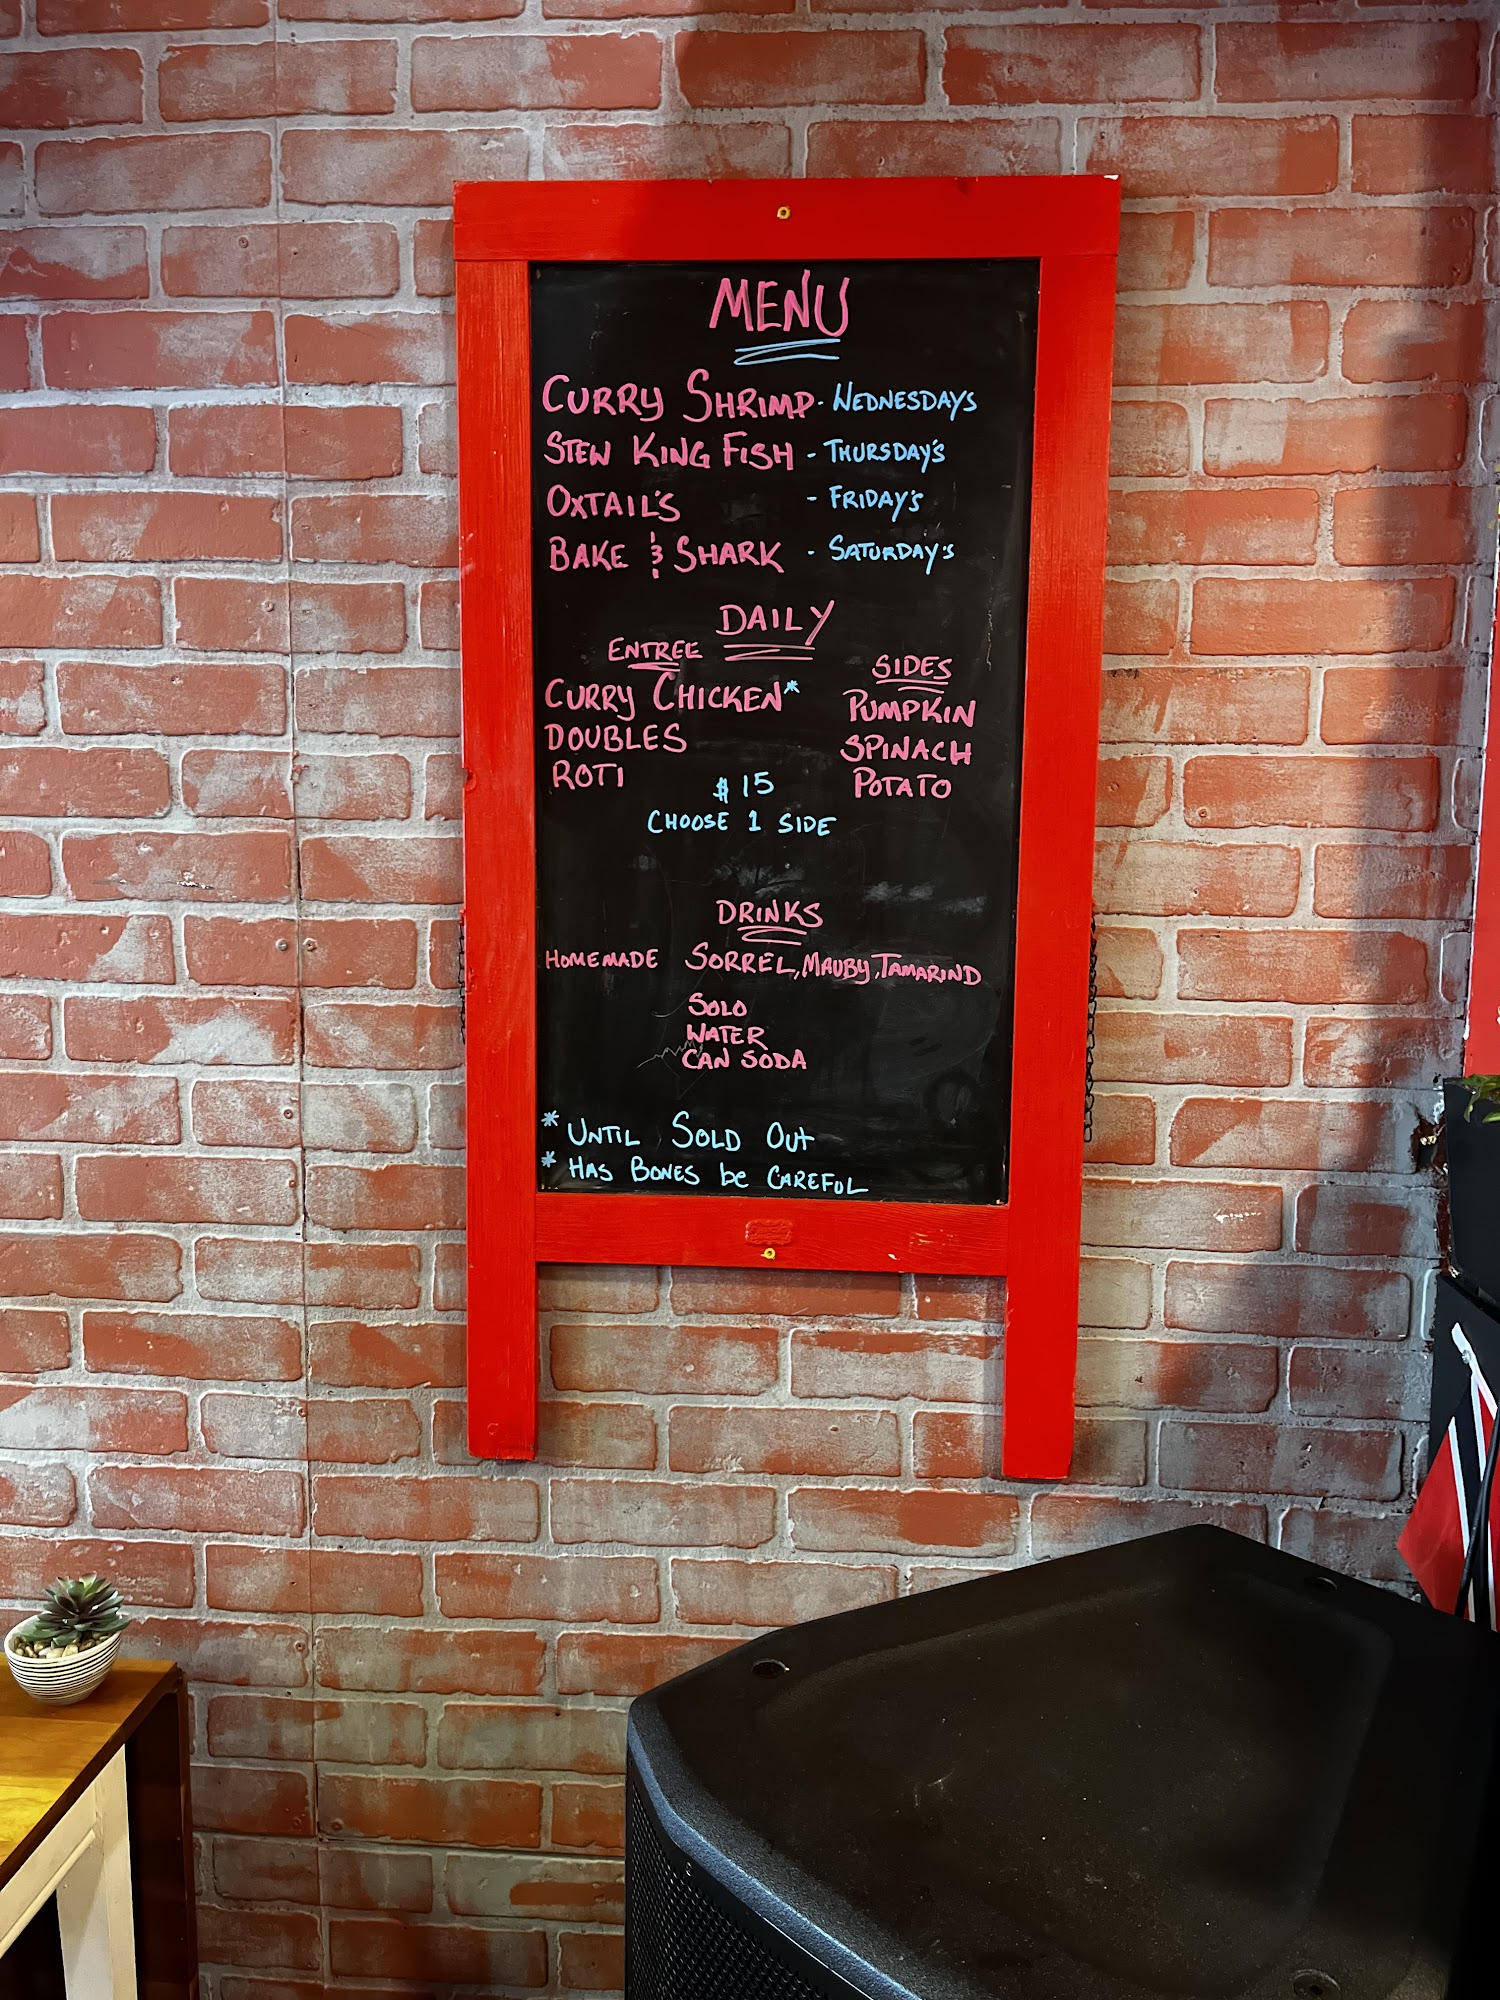 MENU
CURRY SHRIMP - WEDNESDAYS
STEW KING FISH - THURSDAY'S
OXTAIL'S - FRIDAY'S
BAKE & SHARK - SATURDAY'S
DAILY
ENTREE
CURRY CHICKEN*
DOUBLES
ROTI
SIDES
PUMPKIN
SPINACH
POTATO
$15
CHOOSE 1 SIDE
DRINKS
HOMEMADE SORREL, MAUBY, TAMARIND
SOLO
WATER
CAN SODA
* UNTIL SOLD OUT
* HAS BONES be CAREFUL